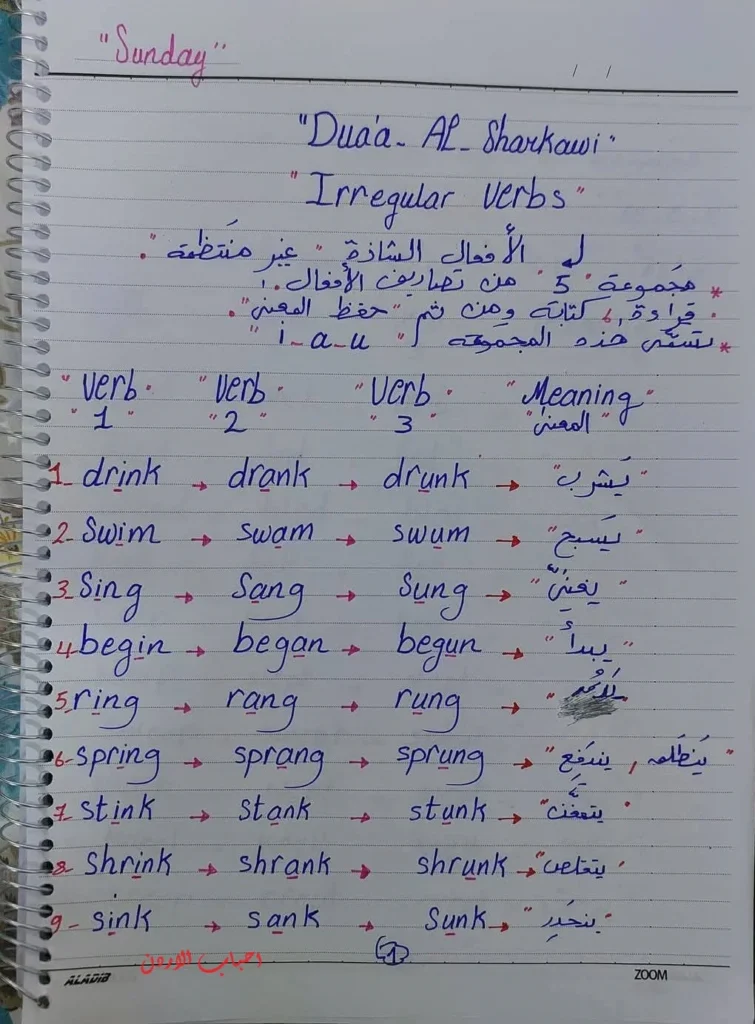 "Sunday"
/ /
"Dua'a - AL - Sharkawi"
"Irregular Verbs"
الأفعال الشاذة "غير منتَظمة".
* مجَموعة "5" من تصاريف الأفعال.
. قراءة, كتابة ومن ثم "حفظ المعنى".
* تسمّى هذه المجموعة "i - a - u"
"Verb" "Verb" "Verb" "Meaning"
"1" "2" "3" "المعنى"
1- drink → drank → drunk → "يَشرب"
2- Swim → swam → swum → "يَسبح"
3- Sing → Sang → Sung → "يغنيّ"
4- begin → began → begun → "يبدأ"
5- ring → rang → rung →
6- spring → sprang → sprung → "يندَفع , يَنطَلق"
7- stink → stank → stunk → "يتعفّن"
8- shrink → shrank → shrunk → "يتقلص"
9- sink → sank → Sunk → "ينحَدِر"
احباب الاردن
1
ALADIB ZOOM